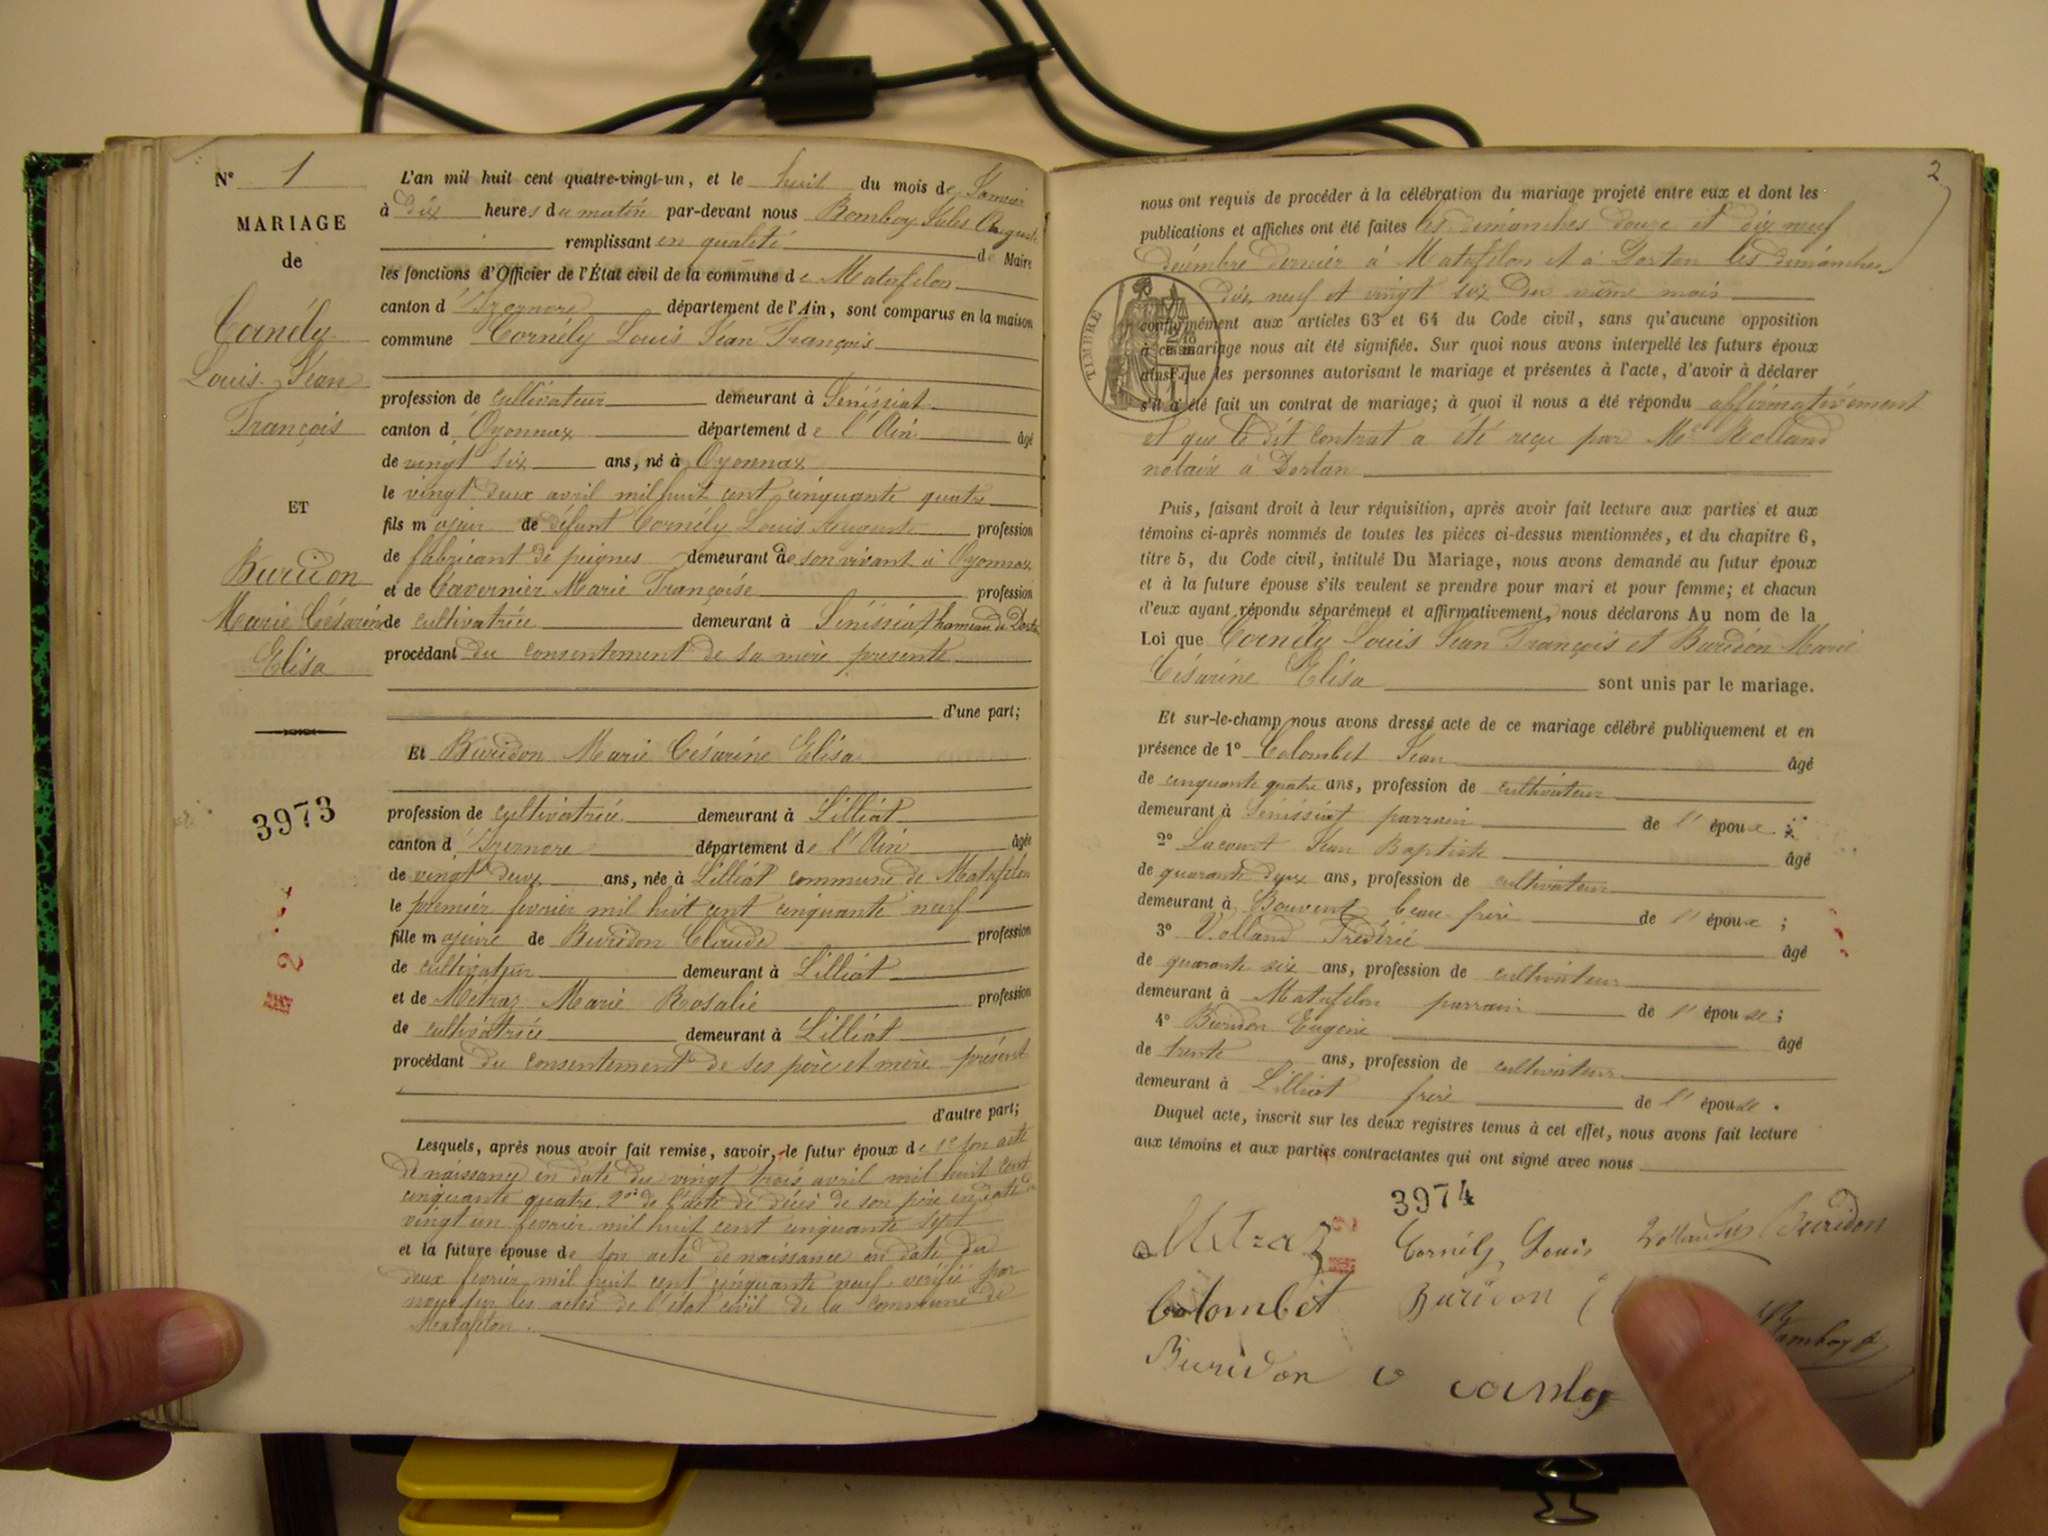 N° 1
MARIAGE
de
Cornély
Louis Jean
François
ET
Buridon
Marie Césarine
Elisa
3973
L'an mil huit cent quatre-vingt-un, et le huit du mois de Janvier
à dix heures du matin par-devant nous Bomboy Jules Auguste
remplissant en qualité de Maire
les fonctions d'Officier de l'État civil de la commune de Matafelon
canton d'Izernore département de l'Ain, sont comparus en la maison
commune Cornély Louis Jean François
profession de cultivateur demeurant à Sénissiat
canton d'Oyonnax département de l'Ain âgé
de vingt six ans, né à Oyonnax
le vingt deux avril mil huit cent cinquante quatre
fils majeur de défunt Cornély Louis Auguste profession
de fabricant de peignes demeurant de son vivant à Oyonnax
et de Tavernier Marie Françoise profession
de cultivatrice demeurant à Sénissiat hameau de Dortan
procédant du consentement de sa mère presente
d'une part;
Et Buridon Marie Césarine Elisa
profession de cultivatrice demeurant à Lilliat
canton d'Izernore département de l'Ain âgée
de vingt deux ans, née à Lilliat commune de Matafelon
le premier fevrier mil huit cent cinquante neuf
fille majeure de Buridon Claude profession
de cultivateur demeurant à Lilliat
et de Métraz Marie Rosalie profession
de cultivatrice demeurant à Lilliat
procédant du consentement de ses père et mère présent
d'autre part;
Lesquels, après nous avoir fait remise, savoir, le futur époux de 1° son acte
de naissance en date du vingt trois avril mil huit cent
cinquante quatre 2° de l'acte de décès de son père en date du
vingt un fevrier mil huit cent cinquante sept
et la future épouse de son acte de naissance en date du
deux fevrier mil huit cent cinquante neuf vérifié par
nous sur les actes de l'état civil de la commune de
Matafelon.
2
nous ont requis de procéder à la célébration du mariage projeté entre eux et dont les
publications et affiches ont été faites les dimanches douze et dix neuf
décembre dernier à Matafelon et à Dortan les dimanches
dix neuf et vingt six du même mois
TIMBRE
conformément aux articles 63 et 64 du Code civil, sans qu'aucune opposition
à ce mariage nous ait été signifiée. Sur quoi nous avons interpellé les futurs époux
ainsi que les personnes autorisant le mariage et présentes à l'acte, d'avoir à déclarer
s'il a été fait un contrat de mariage; à quoi il nous a été répondu affirmativement
et que le dit contrat a été reçu par Me Rolland
notaire à Dortan
Puis, faisant droit à leur réquisition, après avoir fait lecture aux parties et aux
témoins ci-après nommés de toutes les pièces ci-dessus mentionnées, et du chapitre 6,
titre 5, du Code civil, intitulé Du Mariage, nous avons demandé au futur époux
et à la future épouse s'ils veulent se prendre pour mari et pour femme; et chacun
d'eux ayant répondu séparément et affirmativement, nous déclarons Au nom de la
Loi que Cornély Louis Jean François et Buridon Marie
Césarine Elisa sont unis par le mariage.
Et sur-le-champ nous avons dressé acte de ce mariage célébré publiquement et en
présence de 1° Colombet Jean âgé
de cinquante quatre ans, profession de cultivateur
demeurant à Sénissiat parrain de l'époux;
2° Lacourt Jean Baptiste âgé
de quarante deux ans, profession de cultivateur
demeurant à Bouvent beau frère de l'époux;
3° Volland Fréderic âgé
de quarante six ans, profession de cultivateur
demeurant à Matafelon parrain de l'épouse;
4° Buridon Eugène âgé
de trente ans, profession de cultivateur
demeurant à Lilliat frère de l'épouse.
Duquel acte, inscrit sur les deux registres tenus à cet effet, nous avons fait lecture
aux témoins et aux parties contractantes qui ont signé avec nous
3974
Metraz Cornély Louis Buridon
Colombet Buridon Bomboy
Buridon